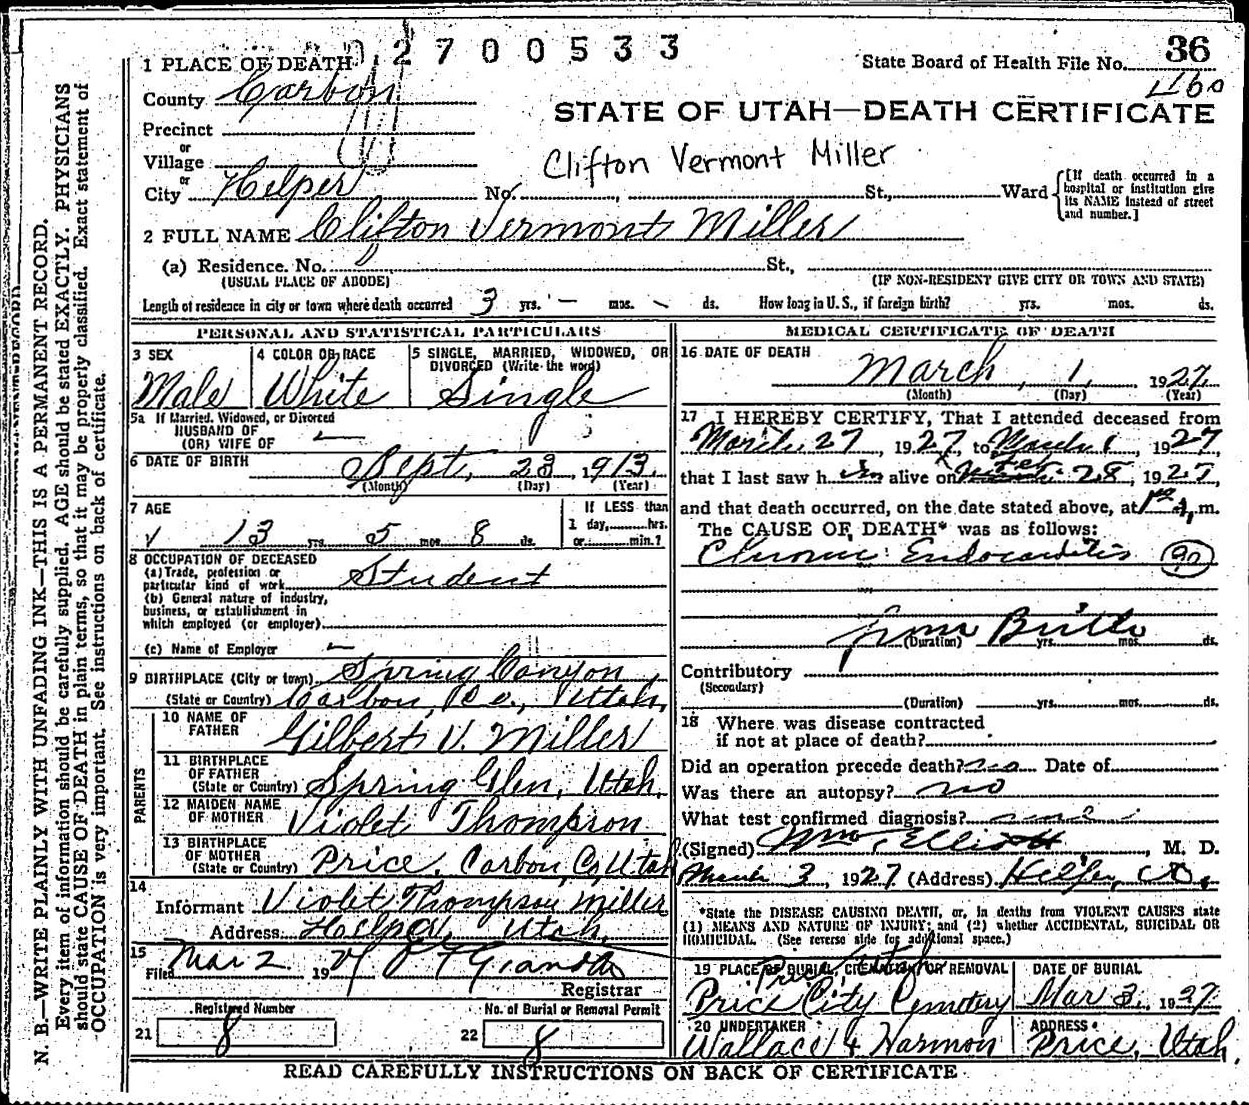 02700533
36
State Board of Health File No.
460
1 PLACE OF DEATH
County Carbon
STATE OF UTAH—DEATH CERTIFICATE
Precinct
or
Village
Clifton Vermont Miller
or
City Helper No. , St., Ward
[If death occurred in a
hospital or institution give
its NAME instead of street
and number.]
2 FULL NAME Clifton Vermont Miller
(a) Residence. No. St.,
(USUAL PLACE OF ABODE) (IF NON-RESIDENT GIVE CITY OR TOWN AND STATE)
Length of residence in city or town where death occurred 3 yrs. – mos. – ds. How long in U. S., if foreign birth? yrs. mos. ds.
PERSONAL AND STATISTICAL PARTICULARS
3 SEX
Male
4 COLOR OR RACE
White
5 SINGLE, MARRIED, WIDOWED, OR
DIVORCED (Write the word)
Single
5a If Married, Widowed, or Divorced
HUSBAND OF
(OR) WIFE OF –
6 DATE OF BIRTH Sept. 23, 1913.
(Month) (Day) (Year)
7 AGE
13 yrs. 5 mos. 8 ds.
If LESS than
1 day, hrs.
or min.?
8 OCCUPATION OF DECEASED
(a) Trade, profession or
particular kind of work Student
(b) General nature of industry,
business, or establishment in
which employed (or employer)
(c) Name of Employer –
9 BIRTHPLACE (City or town) Spring Canyon
(State or Country) Carbon, Co., Utah,
PARENTS
10 NAME OF
FATHER Gilbert V. Miller
11 BIRTHPLACE
OF FATHER
(State or Country) Spring Glen, Utah.
12 MAIDEN NAME
OF MOTHER Violet Thompson
13 BIRTHPLACE
OF MOTHER
(State or Country) Price, Carbon, Co, Utah
14
Informant Violet Thompson Miller
Address Helper, Utah,
15
Filed Mar 2 1927
Registrar
Registered Number
21 8
No. of Burial or Removal Permit
22 8
MEDICAL CERTIFICATE OF DEATH
16 DATE OF DEATH
March, 1, 1927
(Month) (Day) (Year)
17 I HEREBY CERTIFY, That I attended deceased from
March 27, 1927, to March 1, 1927
that I last saw h im alive on 28, 1927,
and that death occurred, on the date stated above, at m.
The CAUSE OF DEATH* was as follows:
Chronic Endocarditis 90
from Birth
(Duration) yrs. mos. ds.
Contributory
(Secondary)
(Duration) yrs. mos. ds.
18 Where was disease contracted
if not at place of death?
Did an operation precede death? no Date of
Was there an autopsy? no
What test confirmed diagnosis?
(Signed) Wm. Elliott, M. D.
March 3, 1927 (Address) Helper,
*State the DISEASE CAUSING DEATH, or, in deaths from VIOLENT CAUSES state
(1) MEANS AND NATURE OF INJURY; and (2) whether ACCIDENTAL, SUICIDAL OR
HOMICIDAL. (See reverse side for additional space.)
19 PLACE OF BURIAL, CREMATION OR REMOVAL
Price, Utah
Price City Cemetery
DATE OF BURIAL
Mar 3, 1927
20 UNDERTAKER
Wallace & Harmon
ADDRESS
Price, Utah.
READ CAREFULLY INSTRUCTIONS ON BACK OF CERTIFICATE
N. B.—WRITE PLAINLY WITH UNFADING INK—THIS IS A PERMANENT RECORD.
Every item of information should be carefully supplied. AGE should be stated EXACTLY. PHYSICIANS
should state CAUSE OF DEATH in plain terms, so that it may be properly classified. Exact statement of
OCCUPATION is very important. See instructions on back of certificate.